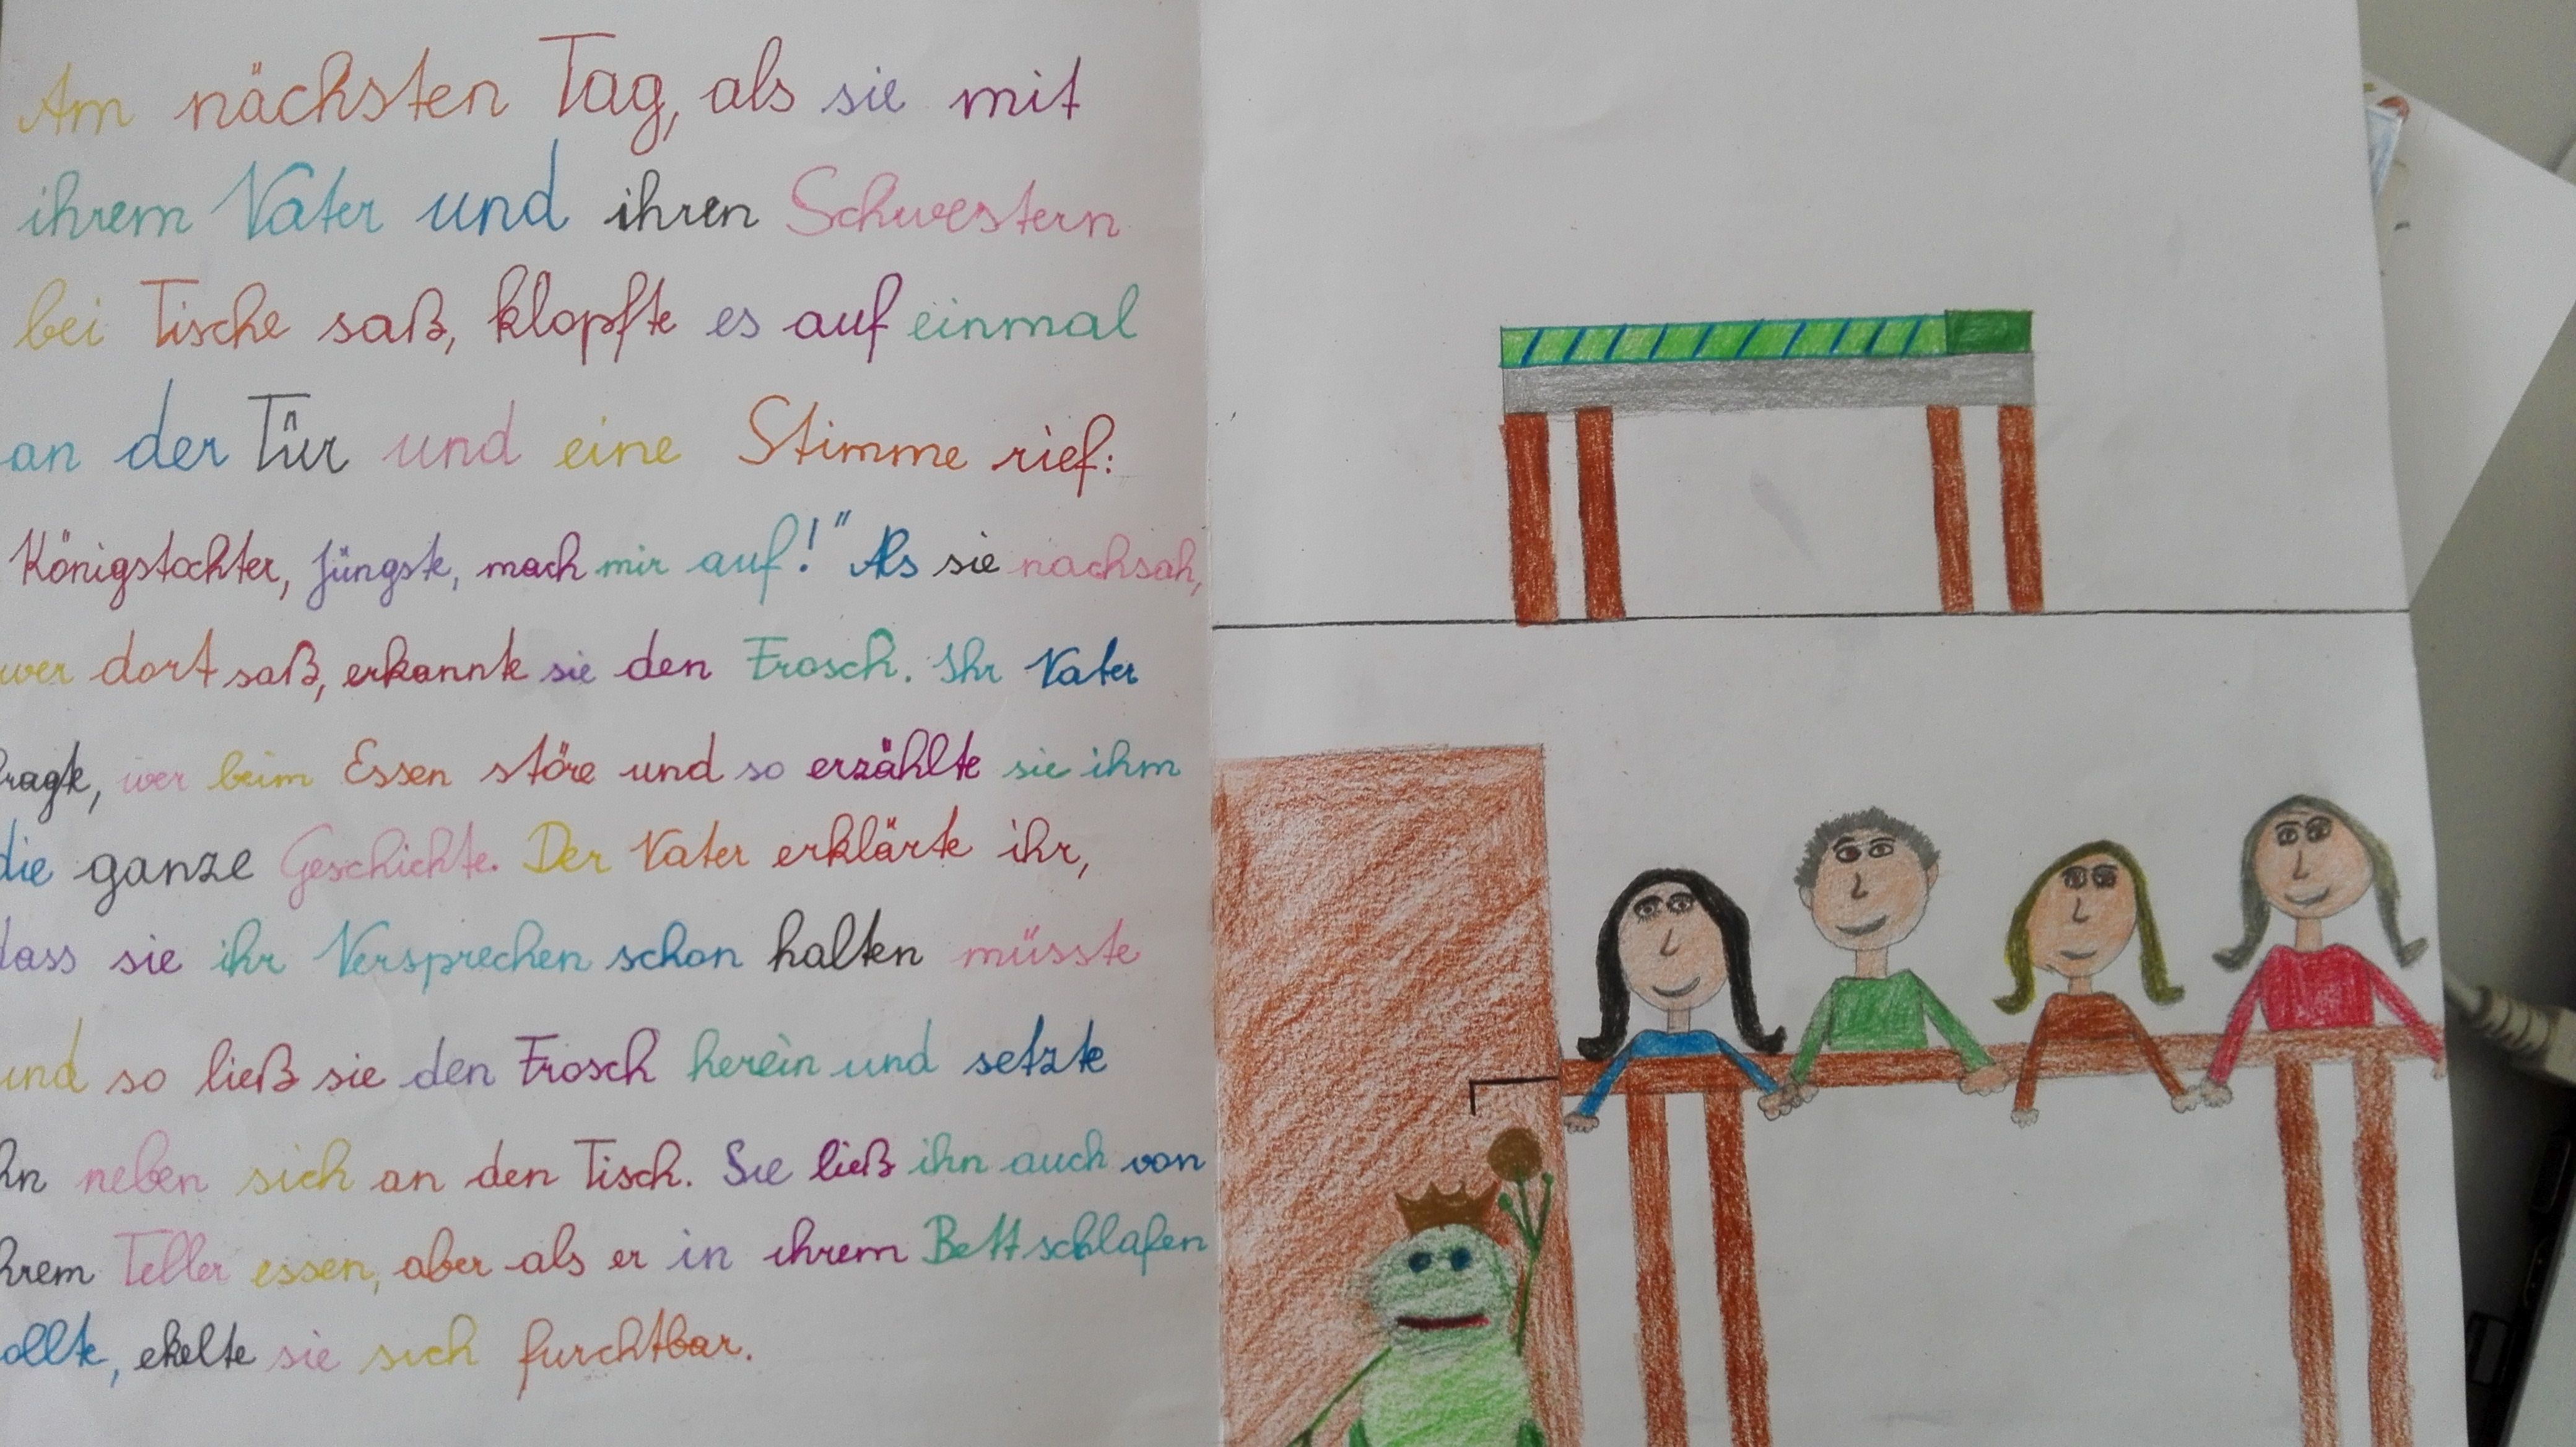 Am nächsten Tag, als sie mit
ihrem Vater und ihren Schwestern
bei Tische saß, klopfte es auf einmal
an der Tür und eine Stimme rief:
Königstochter, Jüngste, mach mir auf!" Als sie nachsah,
wer dort saß, erkannte sie den Frosch. Ihr Vater
fragte, wer beim Essen störe und so erzählte sie ihm
die ganze Geschichte. Der Vater erklärte ihr,
dass sie ihr Versprechen schon halten müsste
und so ließ sie den Frosch herein und setzte
hn neben sich an den Tisch. Sie ließ ihn auch von
hrem Teller essen, aber als er in ihrem Bett schlafen
ollte, ekelte sie sich furchtbar.